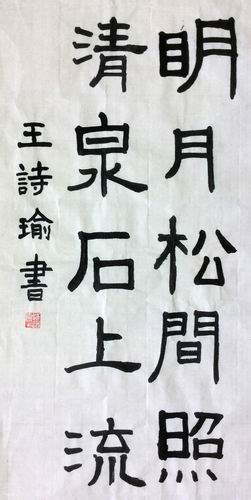 明月松間照
清泉石上流
王詩瑜書